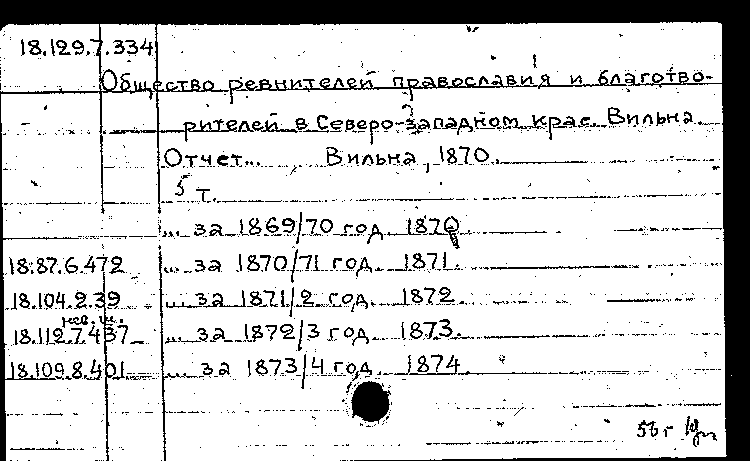 18.129.7.334
Общество ревнителей православия и благотво-
рителей в Северо-западном крае. Вильна.
Отчет... Вильна, 1870.
5 т.
... за 1869/70 год. 1870
18.87.6.472 ... за 1870/71 год. 1871.
18.104.2.39 ... за 1871/2 год. 1872
18.112.7.437 ... за 1872/3 год. 1873.
18.109.8.401 ... за 1873/4 год. 1874.
56 г